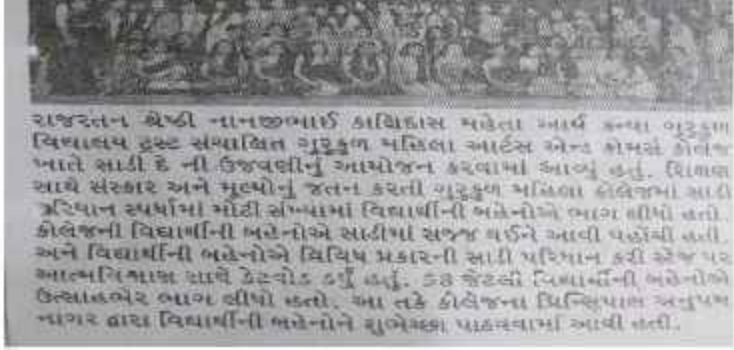 રાજરતન શ્રેષ્ઠી નાનજીભાઈ કાલિદાસ મહેતા આર્ય કન્યા ગુરુકુળ
વિદ્યાલય ટ્રસ્ટ સંચાલિત ગુરુકુળ મહિલા આર્ટસ એન્ડ કોમર્સ કોલેજ
ખાતે સાડી દે ની ઉજવણીનું આયોજન કરવામાં આવ્યું હતું. શિક્ષણ
સાથે સંસ્કાર અને મૂલ્યોનું જતન કરતી ગુરુકુળ મહિલા કોલેજમાં સાડી
પરિધાન સ્પર્ધામાં મોટી સંખ્યામાં વિદ્યાર્થીની બહેનોએ ભાગ લીધો હતો.
કોલેજની વિદ્યાર્થીની બહેનોએ સાડીમાં સજ્જ થઈને આવી પહોંચી હતી.
અને વિદ્યાર્થીની બહેનોએ વિવિધ પ્રકારની સાડી પરિધાન કરી સ્ટેજ પર
આત્મવિશ્વાસ સાથે કેટવોક કર્યું હતું. ૬૩ જેટલી વિદ્યાર્થીની બહેનોએ
ઉત્સાહભેર ભાગ લીધો હતો. આ તકે કોલેજના પ્રિન્સિપાલ અનુપમ
નાગર દ્વારા વિદ્યાર્થીની બહેનોને શુભેચ્છા પાઠવવામાં આવી હતી.